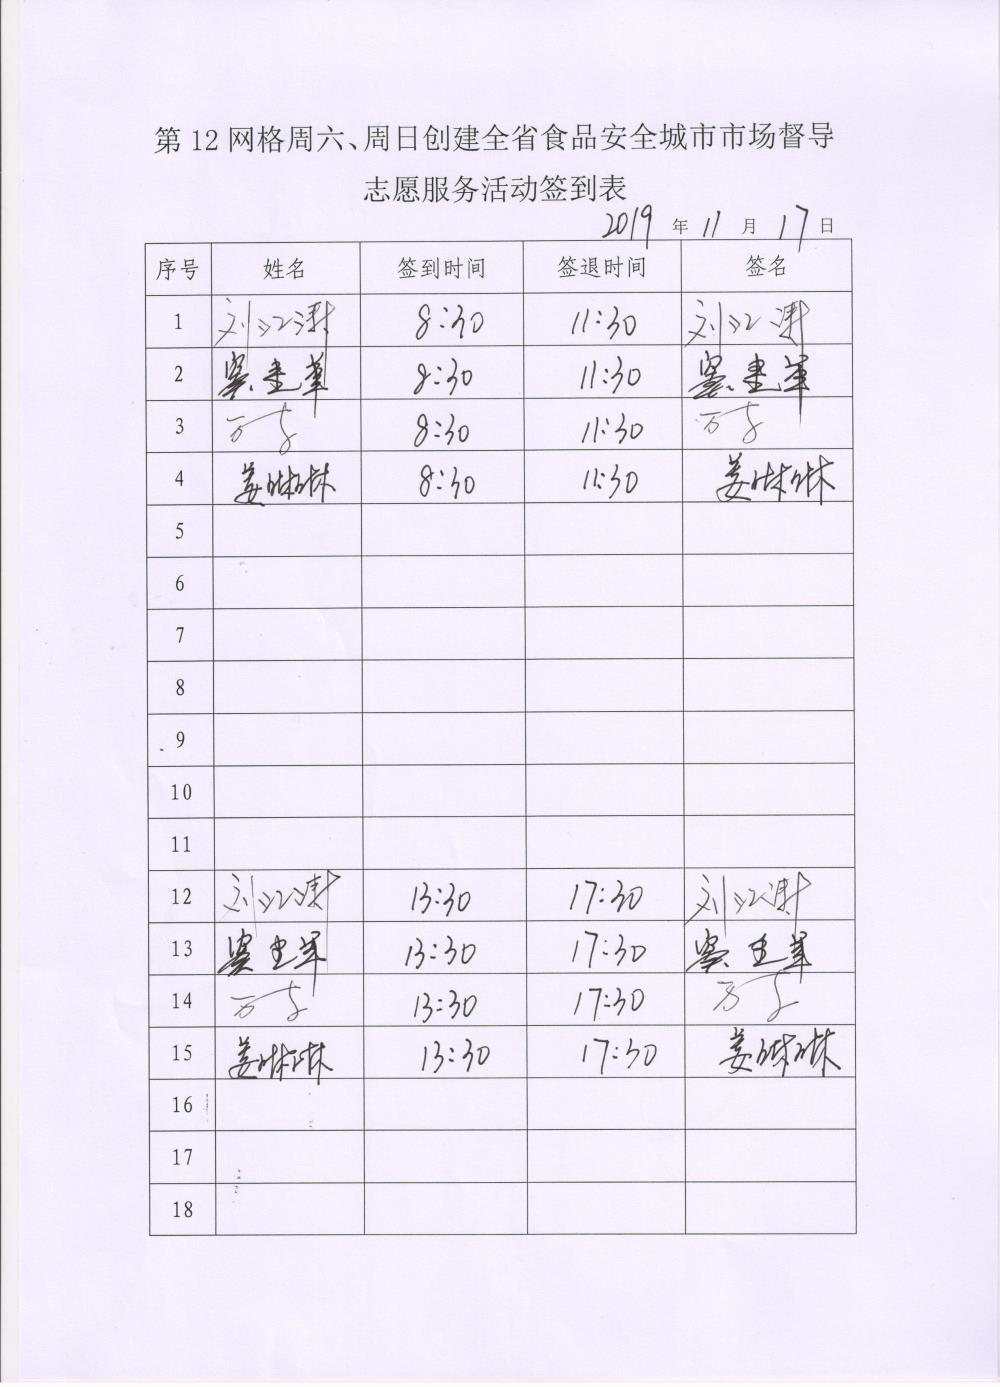 第12网格周六、周日创建全省食品安全城市市场督导
志愿服务活动签到表
2019 年 11 月 17 日
序号 姓名 签到时间 签退时间 签名
1 刘 8:30 11:30 刘
2 8:30 11:30
3 万 8:30 11:30 万
4 姜琳琳 8:30 11:30 姜琳琳
5
6
7
8
9
10
11
12 刘 13:30 17:30 刘
13 13:30 17:30
14 万 13:30 17:30 万
15 姜琳琳 13:30 17:30 姜琳琳
16
17
18